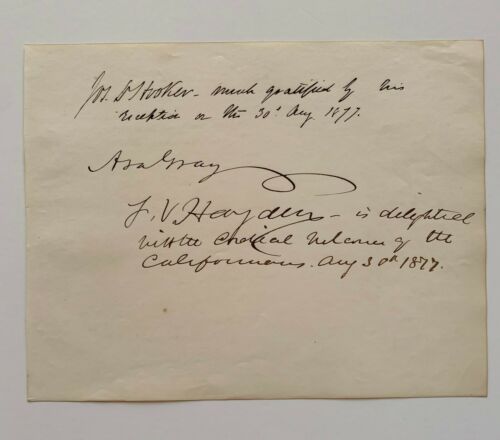 Jos. D Hooker - much gratified by his
reception on the 30th Aug. 1877.
Asa Gray
F. V. Hayden - is delighted
with the cordial welcome of the
Californians. Aug 30th 1877.